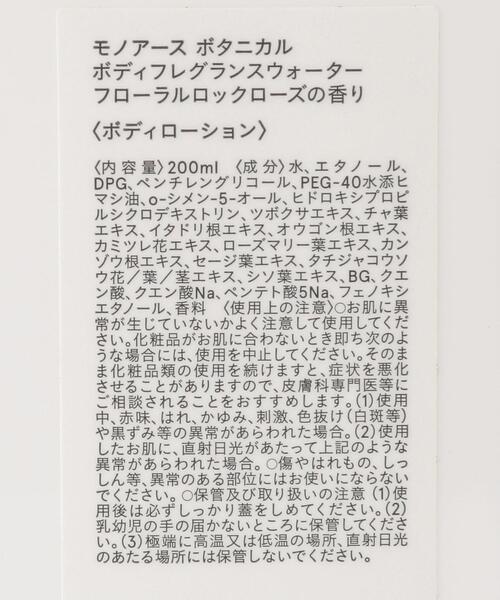 モノアース ボタニカル
ボディフレグランスウォーター
フローラルロックローズの香り
〈ボディローション〉
〈内容量〉200ml 〈成分〉水、エタノール、
DPG、ペンチレングリコール、PEG-40水添ヒ
マシ油、o-シメン-5-オール、ヒドロキシプロピ
ルシクロデキストリン、ツボクサエキス、チャ葉
エキス、イタドリ根エキス、オウゴン根エキス、
カミツレ花エキス、ローズマリー葉エキス、カン
ゾウ根エキス、セージ葉エキス、タチジャコウソ
ウ花/葉/茎エキス、シソ葉エキス、BG、クエ
ン酸、クエン酸Na、ペンテト酸5Na、フェノキシ
エタノール、香料 〈使用上の注意〉○お肌に異
常が生じていないかよく注意して使用してくだ
さい。化粧品がお肌に合わないとき即ち次のよ
うな場合には、使用を中止してください。そのま
ま化粧品類の使用を続けますと、症状を悪化
させることがありますので、皮膚科専門医等に
ご相談されることをおすすめします。(1)使用
中、赤味、はれ、かゆみ、刺激、色抜け(白斑等)
や黒ずみ等の異常があらわれた場合。(2)使用
したお肌に、直射日光があたって上記のような
異常があらわれた場合。○傷やはれもの、しっ
しん等、異常のある部位にはお使いにならない
でください。○保管及び取り扱いの注意 (1)使
用後は必ずしっかり蓋をしめてください。(2)
乳幼児の手の届かないところに保管してくださ
い。(3)極端に高温又は低温の場所、直射日光
のあたる場所には保管しないでください。